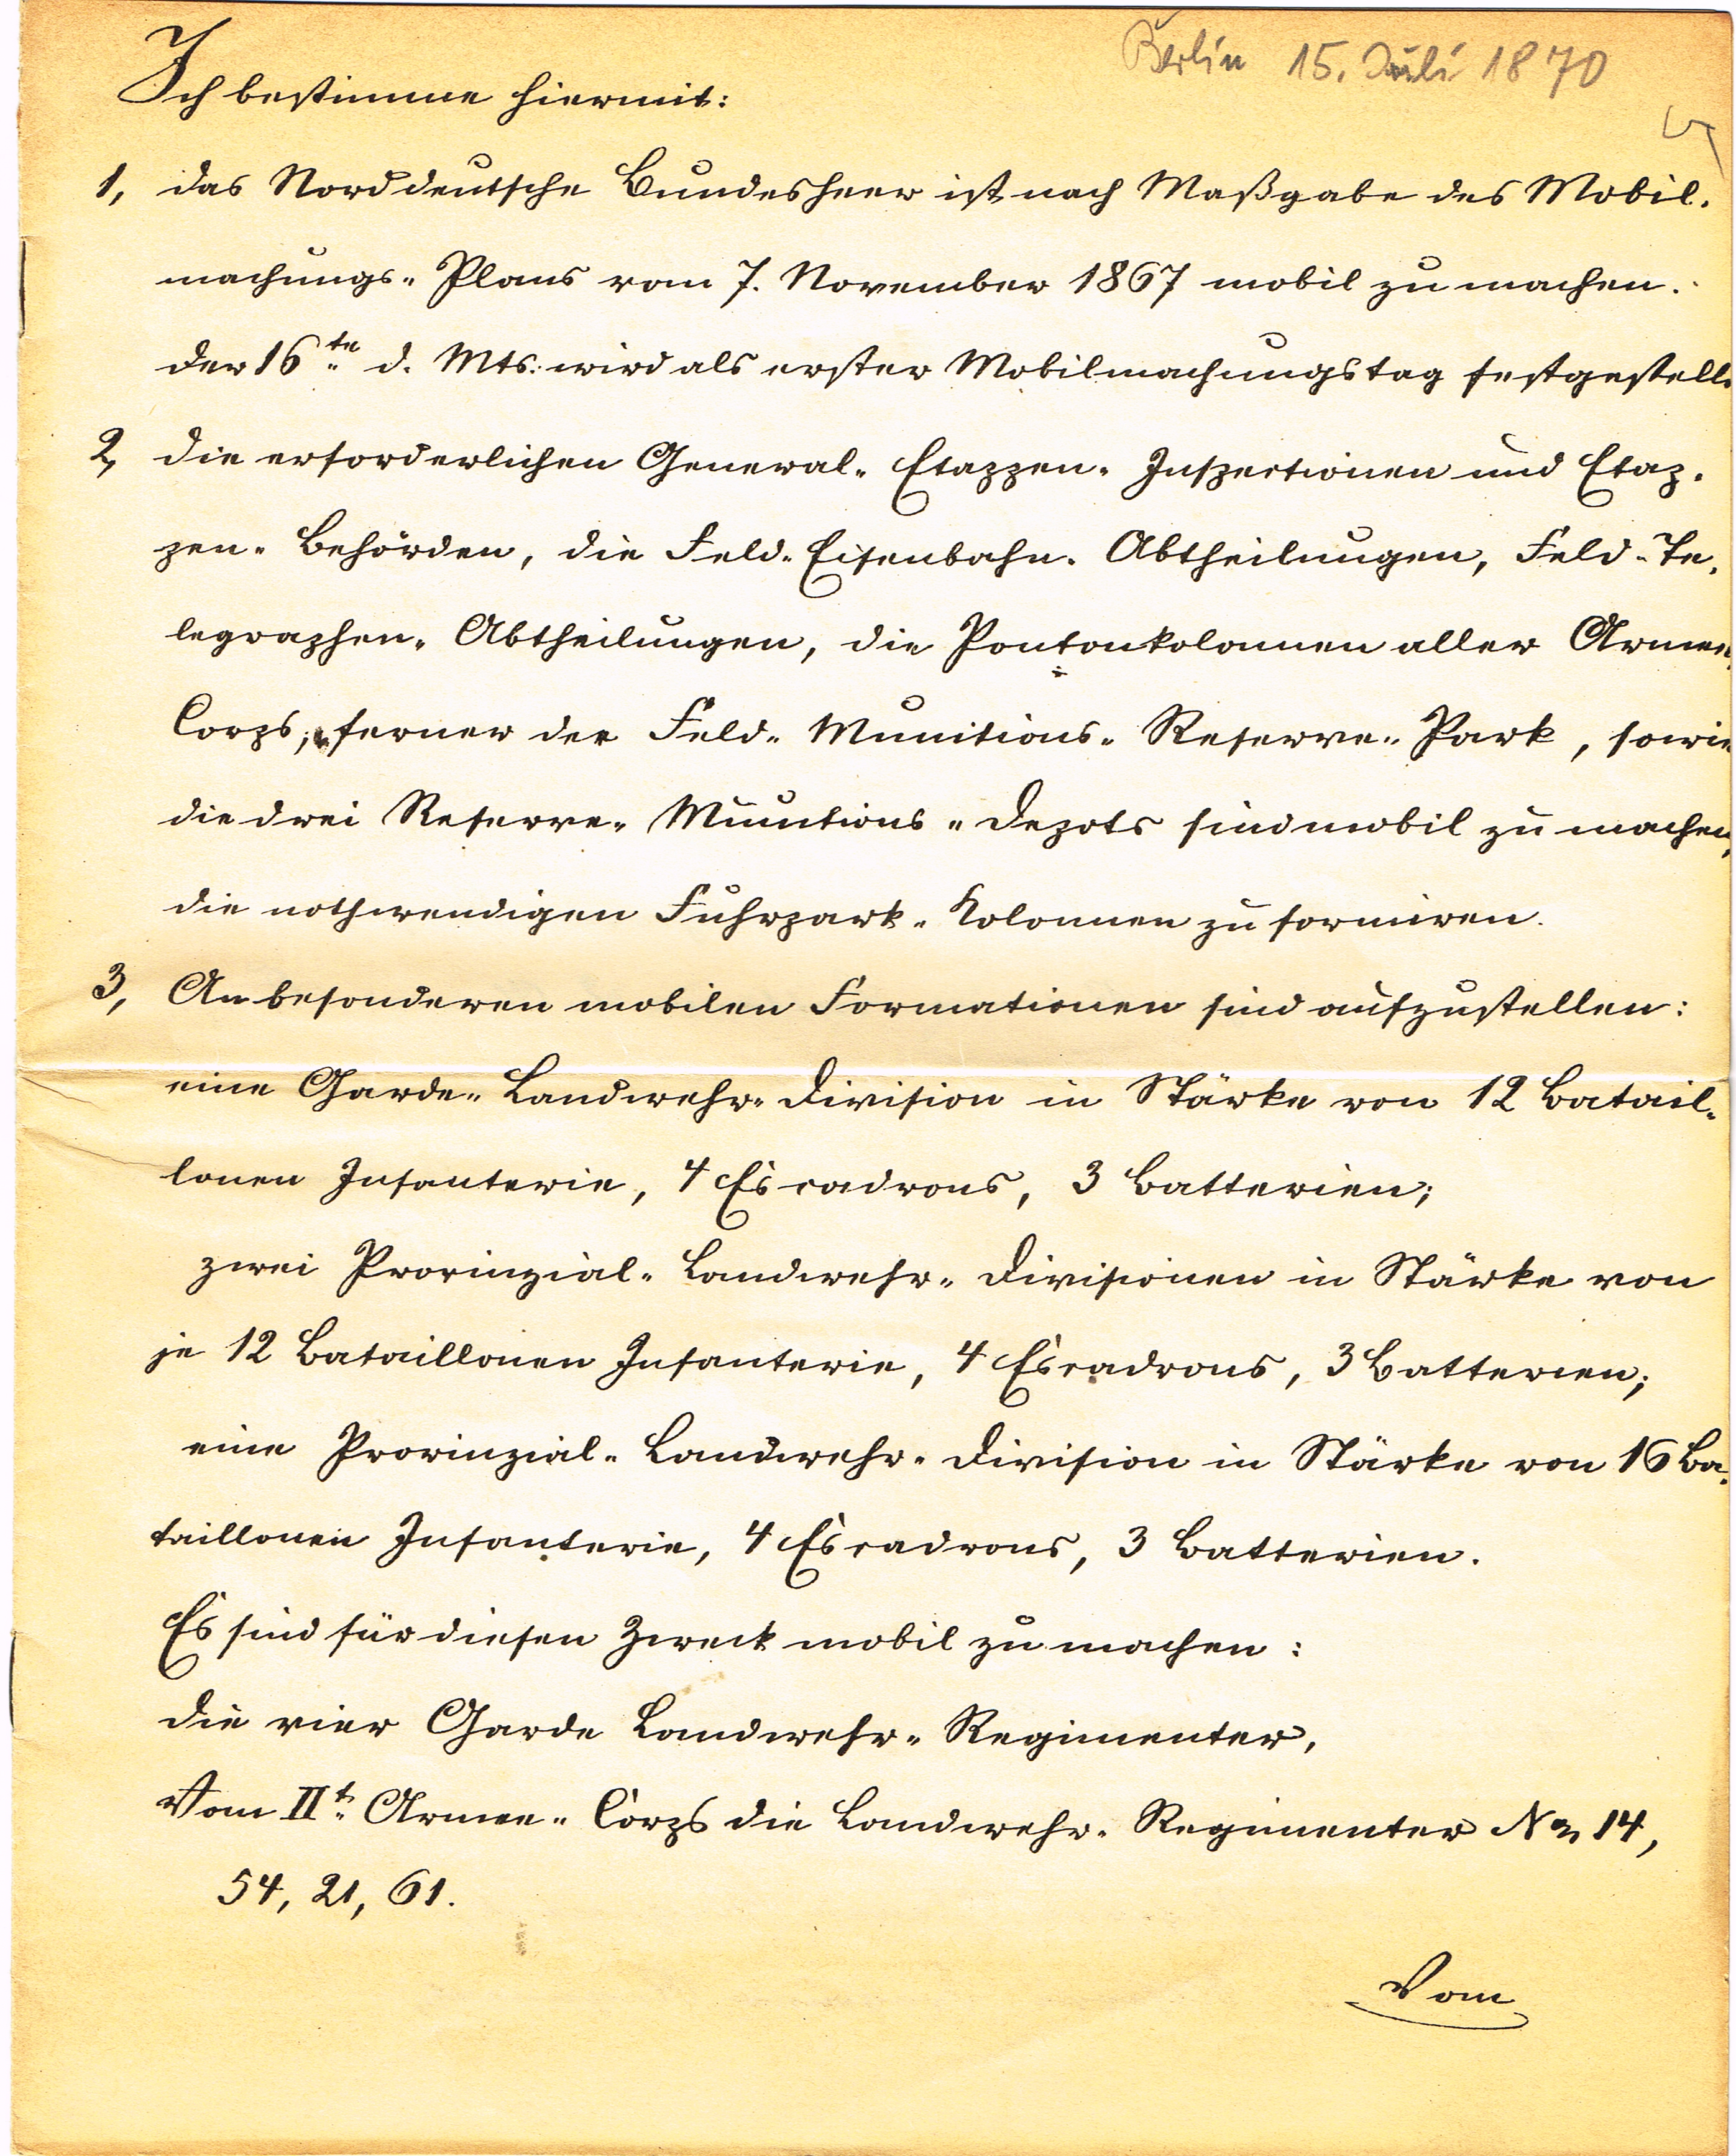 Berlin 15. Juli 1870
Ich bestimme hiermit:
1, das Norddeutsche Bundesheer ist nach Maßgabe des Mobil-
machungs-Plans vom 7. November 1867 mobil zu machen.
der 16te d. Mts. wird als erster Mobilmachungstag festgestellt
2, die erforderlichen General-Etappen-Inspectionen und Etap-
pen-Behörden, die Feld-Eisenbahn-Abtheilungen, Feld-Te-
legraphen-Abtheilungen, die Pontonkolonnen aller Armee-
Corps, ferner der Feld-Munitions-Reserve-Park, sowie
die drei Reserve-Munitions-Depots sind mobil zu machen,
die nothwendigen Fuhrpark-Kolonnen zu formiren.
3, An besonderen mobilen Formationen sind aufzustellen:
eine Garde-Landwehr-Division in Stärke von 12 Batail-
lonen Infanterie, 4 Escadrons, 3 Batterien;
zwei Provinzial-Landwehr-Divisionen in Stärke von
je 12 Bataillonen Infanterie, 4 Escadrons, 3 Batterien;
eine Provinzial-Landwehr-Division in Stärke von 16 Ba-
taillonen Infanterie, 4 Escadrons, 3 Batterien.
Es sind für diesen Zweck mobil zu machen:
die vier Garde Landwehr-Regimenter,
Vom IIt. Armee-Corps die Landwehr-Regimenter No 14,
54, 21, 61.
Vom